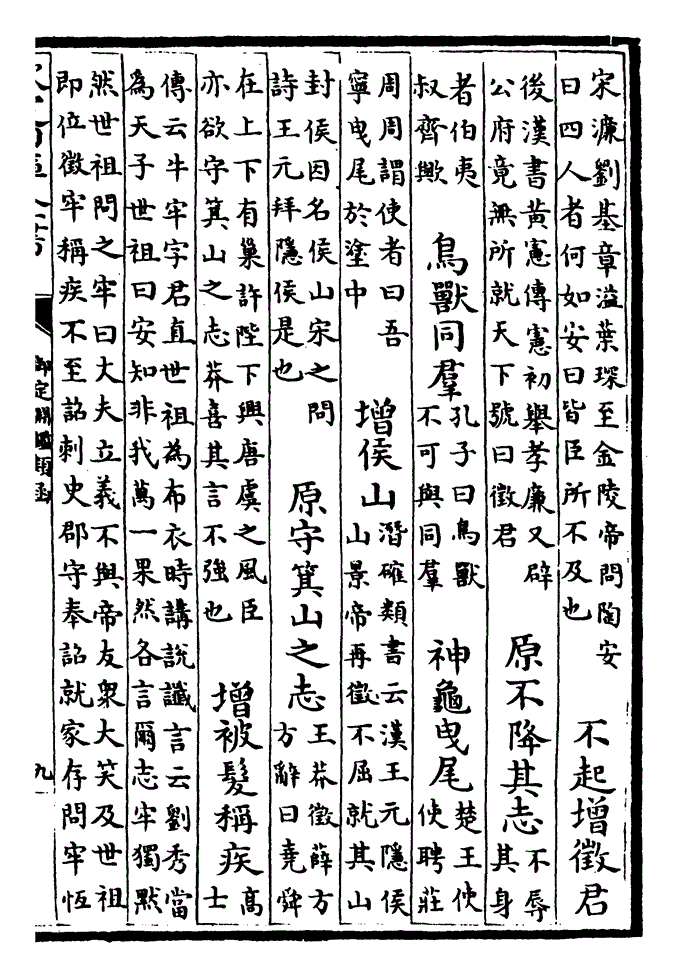 宋濂劉基章溢葉琛至金陵帝問陶安
曰四人者何如安曰皆臣所不及也
不起增徵君
後漢書黃憲傳憲初舉孝廉又辟
公府竟無所就天下號曰徵君
原不降其志
不辱
其身
者伯夷
叔齊歟
鳥獸同羣
孔子曰鳥獸
不可與同羣
神龜曳尾
楚王使
使聘莊
周周謂使者曰吾
寧曳尾於塗中
增侯山
潛確類書云漢王元隱侯
山景帝再徵不屈就其山
封侯因名侯山宋之問
詩王元拜隱侯是也
原守箕山之志
王莽徵薛方
方辭曰堯舜
在上下有巢許陛下興唐虞之風臣
亦欲守箕山之志莽喜其言不強也
增被髮稱疾
高
士
傳云牛牢字君直世祖為布衣時講說讖言云劉秀當
為天子世祖曰安知非我萬一果然各言爾志牢獨默
然世祖問之牢曰大夫立義不與帝友衆大笑及世祖
即位徵牢稱疾不至詔刺史郡守奉詔就家存問牢恆
御定淵鑑類函
九